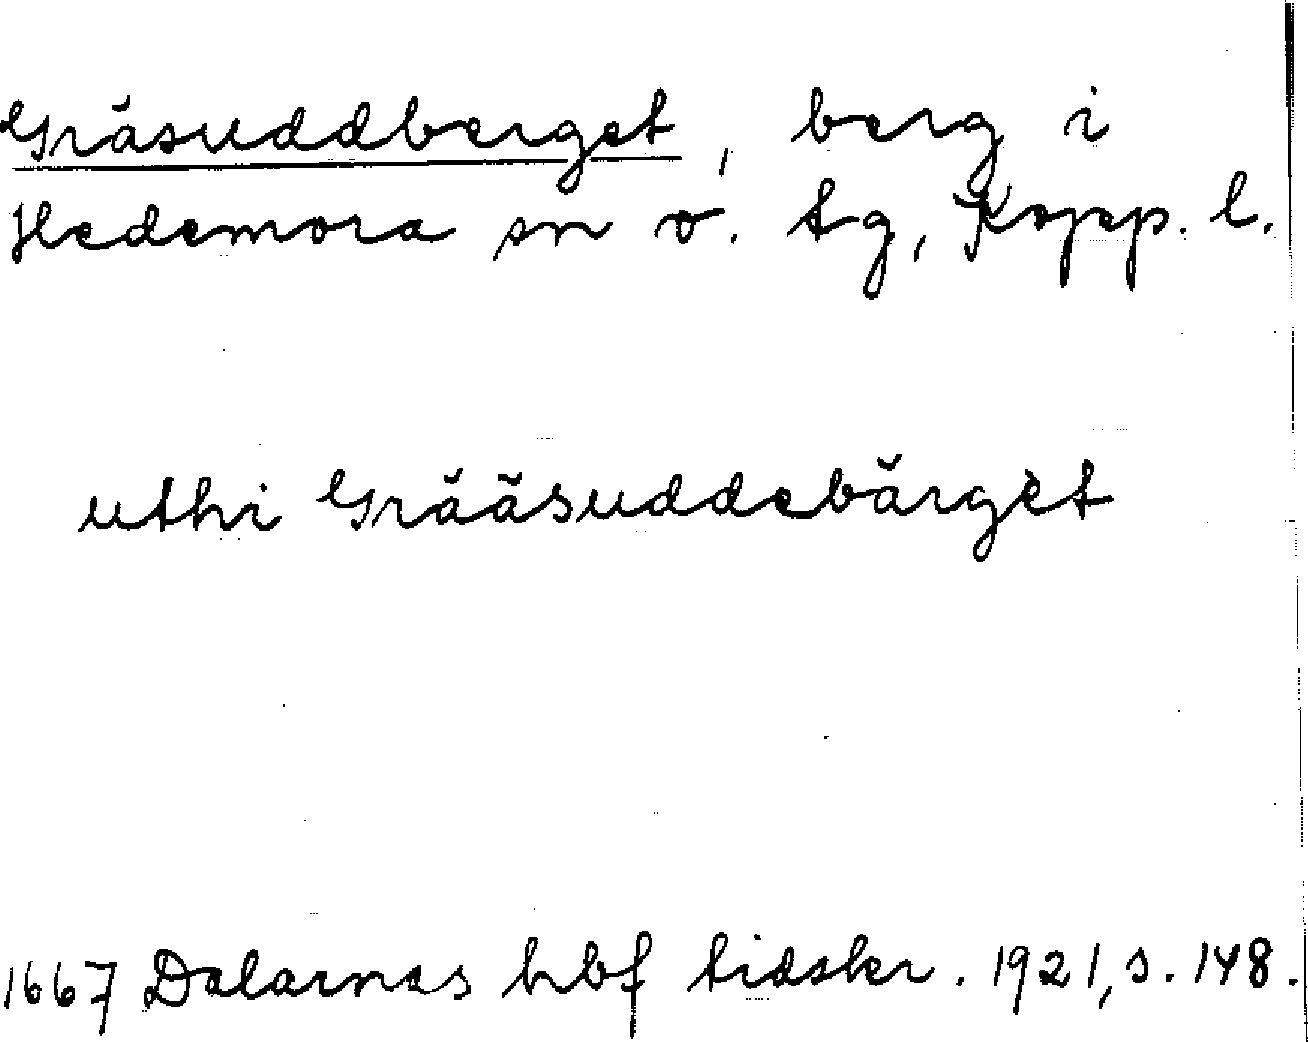 Gräsuddberget, berg i
Hedemora sn o. tg, Kopp. l.
uthi Grääsuddebärget
1667 Dalarnas hbf tidskr. 1921, s. 148.